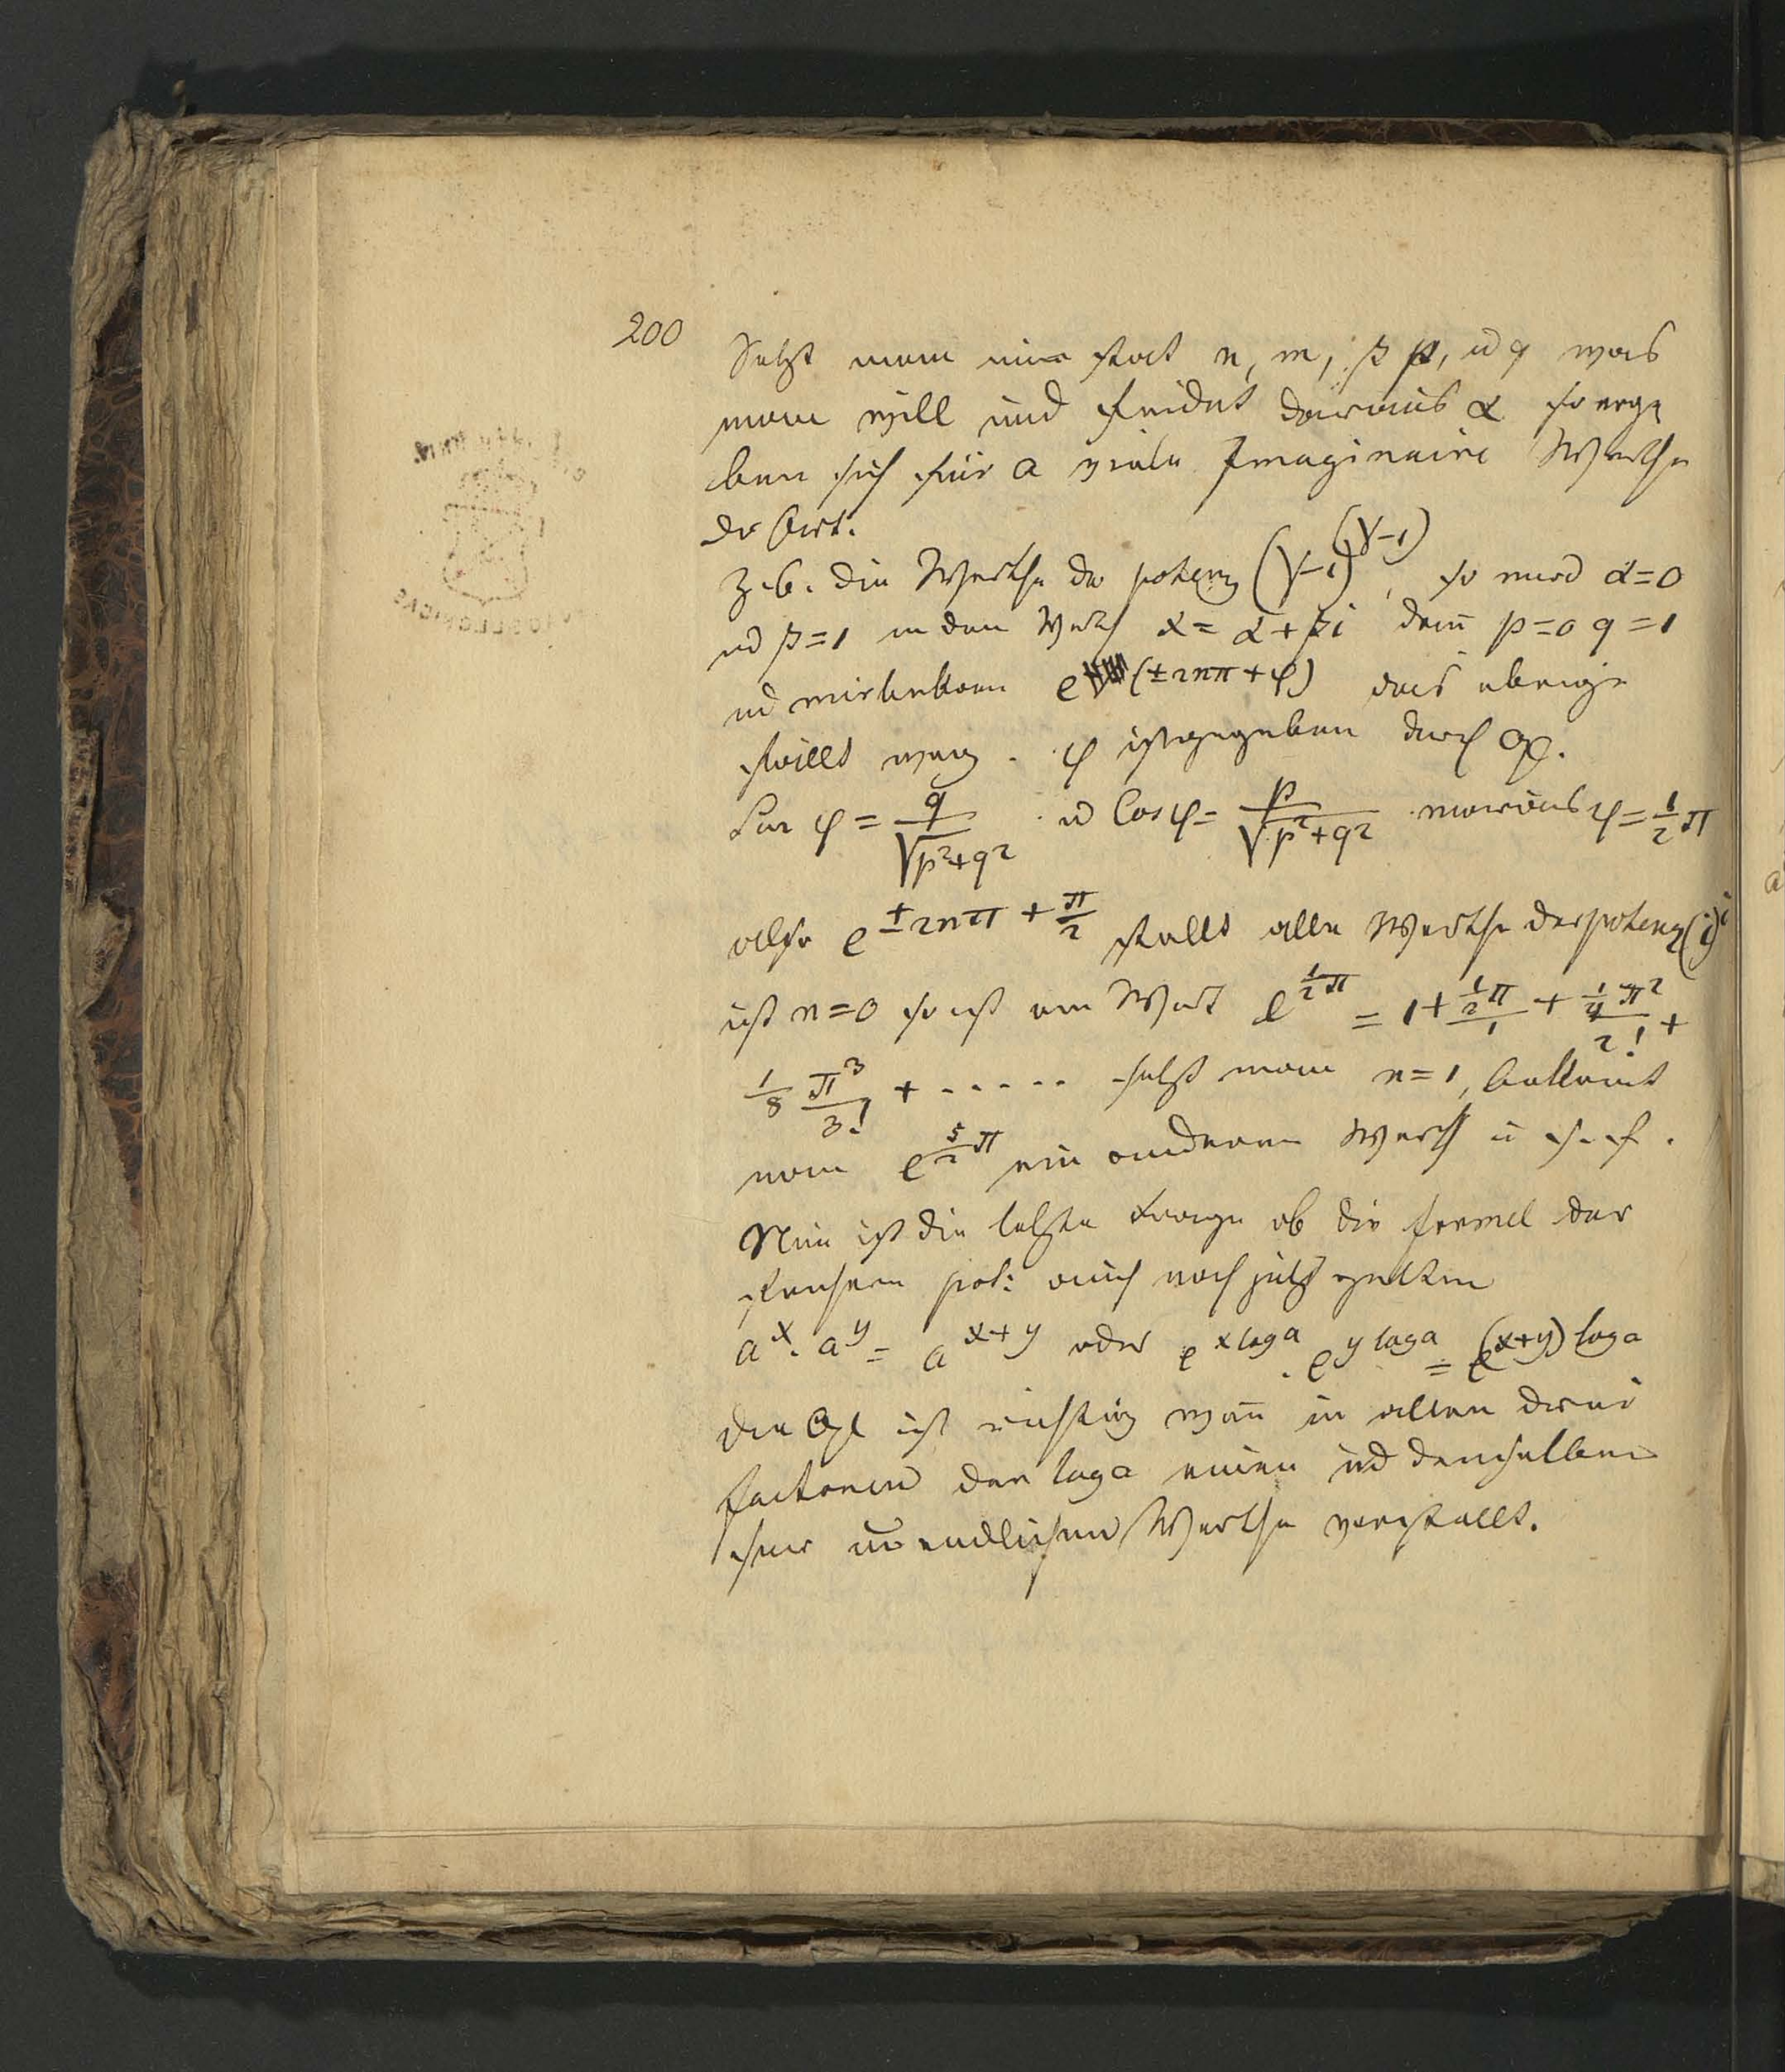 200
Setzt man nun statt n, m, β p, ud q was
man will und findet daraus α so erge
ben sich für a viele Imaginaire Werthe
der Art.
Z.b. die Werthe der potenz (√-1)^(√-1), so wird α=0
ud β=1 in dem Werth x = α+βi dann p=0 q=1
ud wir bekom e^(±2nπ+φ) das übrige
fällt weg. φ ist gegeben durch
Sin φ = q/√(p²+q²) ud Cos φ = p/√(p²+q²) woraus φ = ½π
also e^(±2nπ + π/2) stellt alle Werthe der potenz (i)^i
ist n=0 so ist ein Wert e^(½π) = 1 + ½π/1 + ¼π²/2! +
⅛ π³/3! + ...... setzt man n=1, bekomt
man e^(5/2 π) ein anderen Werth u s. f.
Nun ist die letzte Frage ob die formel der
früheren pot: auch noch jetzt gelten
a^x . a^y = a^(x+y) oder e^(x log a) . e^(y log a) = e^((x+y) log a)
die Gl ist richtig wenn in allen drei
factoren der log a einen ud denselben
sein unendlichen Werthe vorstellt.